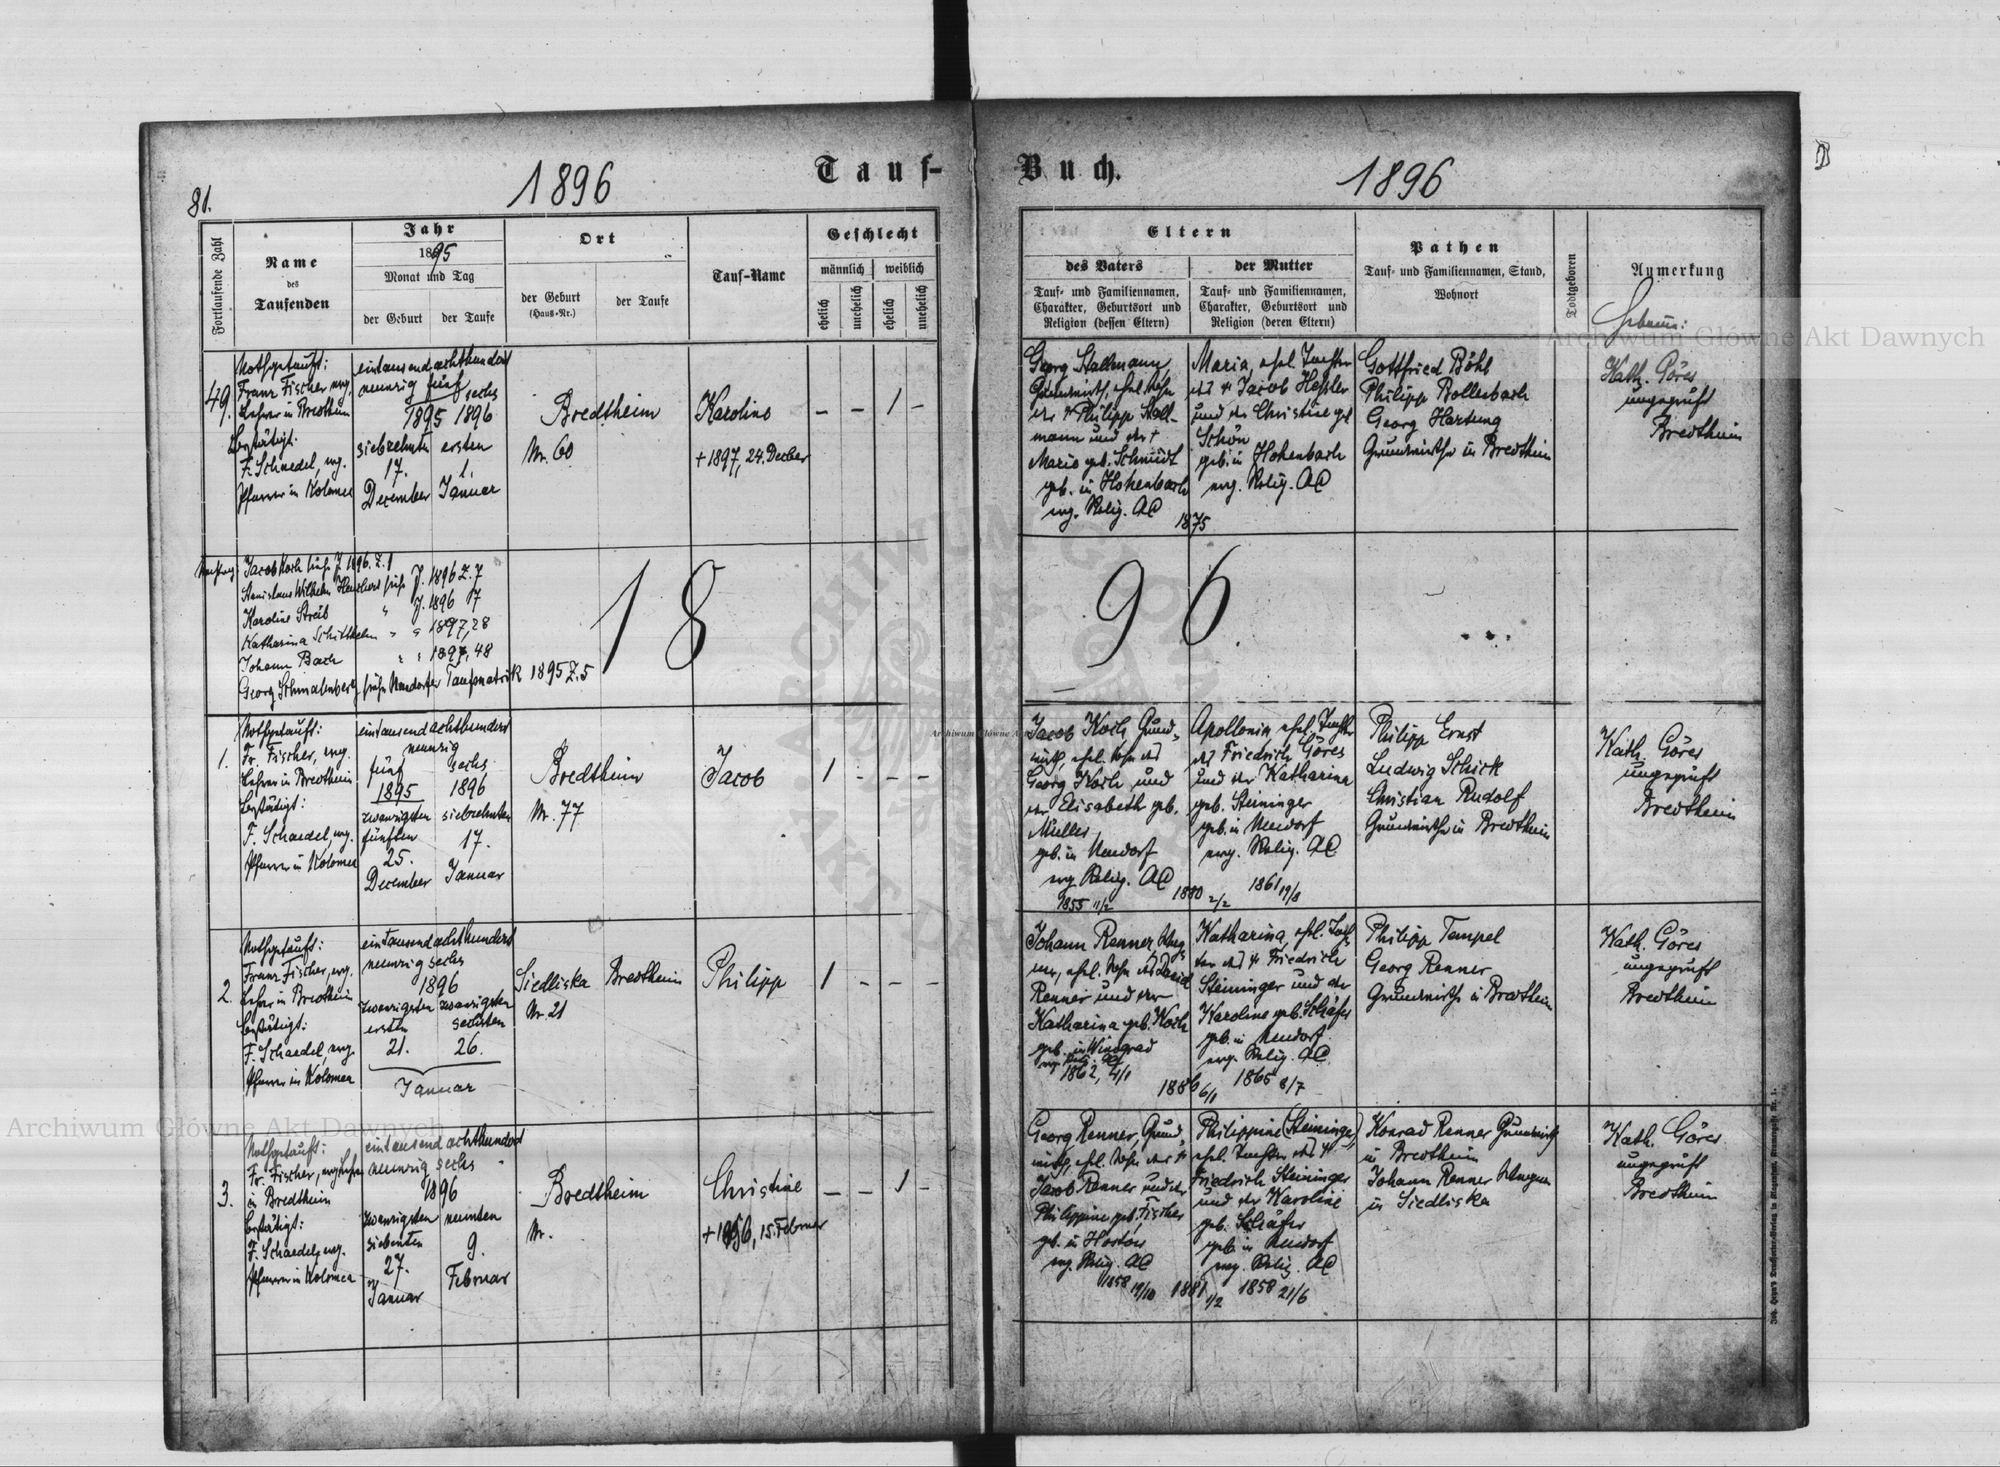 1896
Tauf-
Buch.
1896
81.
Fortlaufende Zahl
Name
des
Taufenden
Jahr
1895
Monat und Tag
der Geburt
der Taufe
Ort
der Geburt
(Haus-Nr.)
der Taufe
Tauf-Name
Geschlecht
männlich
weiblich
ehelich
unehelich
ehelich
unehelich
Eltern
des Vaters
Tauf- und Familiennamen,
Charakter, Geburtsort und
Religion (dessen Eltern)
der Mutter
Tauf- und Familiennamen,
Charakter, Geburtsort und
Religion (deren Eltern)
Pathen
Tauf- und Familiennamen, Stand,
Wohnort
Todtgeboren
Anmerkung
Archiwum Główne Akt Dawnych
49.
Nothgetauft:
Franz Fischer, evg.
Lehrer in Bredtheim
bestätigt:
F. Schaedel, evg.
Pfarrer in Kolomea
eintausend achthundert
neunzig fünf
sechs
1895 1896
siebzehnten ersten
17. 1.
December Januar
Bredtheim
Nr. 60
Karoline
+ 1897, 24. Decber
– – 1 –
Georg Stallmann,
Grundwirth, ehel. Sohn
des + Philipp Stall-
mann und der +
Marie geb. Schmidt
geb. in Hohenbach
evg. Relig. AC
1875
Maria, ehel. Tochter
des + Jacob Heßler
und der Christine geb.
Schön
geb. in Hohenbach
evg. Relig. AC
Gottfried Böhl
Philipp Bollenbach
Georg Hartung
Grundwirthe in Bredtheim
Kath. Göres
ungeprüft
Bredtheim
Jacob Koch siehe J. 1896. Z. 1
Stanislaus Wilhelm siehe J. 1896 Z. 7
Karoline Streib " J. 1896 7
Katharina Schitthelm " " 1897, 28
Johann Bach " " 1897, 48
Georg Schmalenberg siehe Neudorfer Taufmatrik 1895 Z. 5
18
96
1.
Nothgetauft:
Fr. Fischer, evg.
Lehrer in Bredtheim
bestätigt:
F. Schaedel, evg.
Pfarrer in Kolomea
eintausend achthundert
neunzig
fünf sechs
1895 1896
zwanzigsten siebzehnten
fünften
25. 17.
December Januar
Bredtheim
Nr. 77
Jacob
1 - - -
Jacob Koch, Grund-
wirth, ehel. Sohn des
Georg Koch und
der Elisabeth geb.
Müller,
geb. in Neudorf
evg. Relig. AC
1855 11/2
1880 2/2
Apollonia, ehel. Tochter
des Friedrich Göres
und der Katharina
geb. Steininger
geb. in Neudorf
evg. Relig. AC
1861 19/8
Philipp Ernst
Ludwig Schick
Christian Rudolf
Grundwirthe in Bredtheim
Kath. Göres
ungeprüft
Bredtheim
Archiwum Główne A
2.
Nothgetauft:
Franz Fischer, evg.
Lehrer in Bredtheim
bestätigt:
F. Schaedel, evg.
Pfarrer in Kolomea
eintausend achthundert
neunzig sechs
1896
zwanzigsten zwanzigsten
ersten sechsten
21. 26.
Januar
Siedliska
Nr. 21
Bredtheim
Philipp
1 - - -
Johann Renner, Wag-
ner, ehel. Sohn des David
Renner und der
Katharina geb. Koch
geb. in Winograd
evg. Relig. AC
1862, 4/1
1886 6/1
Katharina, ehel. Toch-
ter des + Friedrich
Steininger und der
Karoline geb. Schäfer
geb. in Neudorf
evg. Relig. AC
1865 8/7
Philipp Tempel
Georg Renner
Grundwirthe in Bredtheim
Kath. Göres
ungeprüft
Bredtheim
Archiwum Główne Akt Dawnych
3.
Nothgetauft:
Fr. Fischer, evg. Lehrer
in Bredtheim
bestätigt:
F. Schaedel, evg.
Pfarrer in Kolomea
eintausend achthundert
neunzig sechs
1896
zwanzigsten neunten
siebenten
27. 9.
Januar Februar
Bredtheim
Nr.
Christine
+ 1896, 15. Februar
– – 1 –
Georg Renner, Grund-
wirth, ehel. Sohn des +
Jacob Renner und der
Philippine geb. Fischer
geb. in Horton
evg. Relig. AC
1858 19/10
1881 1/2
Philippine (Steininger)
ehel. Tochter des +
Friedrich Steininger
und der Karoline
geb. Schäfer
geb. in Neudorf
evg. Relig. AC
1858 21/6
Konrad Renner Grundwirth
in Bredtheim
Johann Renner Wagner
in Siedliska
Kath. Göres
ungeprüft
Bredtheim